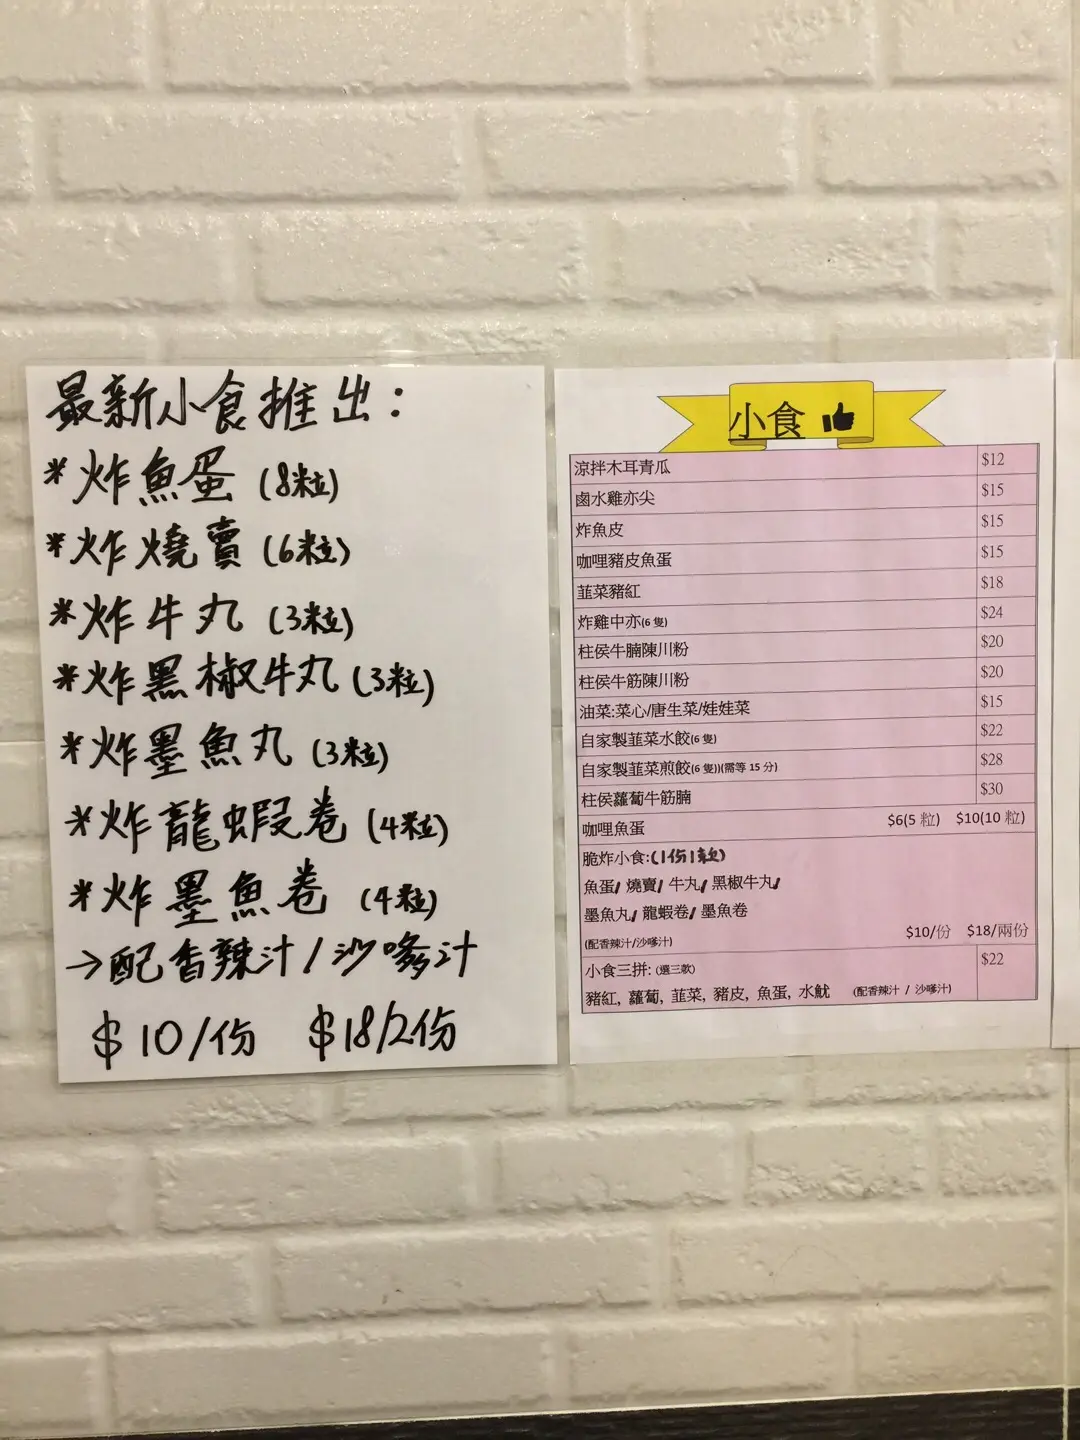 最新小食推出:
*炸魚蛋 (8粒)
*炸燒賣 (6粒)
*炸牛丸 (3粒)
*炸黑椒牛丸 (3粒)
*炸墨魚丸 (3粒)
*炸龍蝦卷 (4粒)
*炸墨魚卷 (4粒)
→配香辣汁/沙嗲汁
$10/份 $18/2份
小食
涼拌木耳青瓜 $12
鹵水雞亦尖 $15
炸魚皮 $15
咖哩豬皮魚蛋 $15
韮菜豬紅 $18
炸雞中亦(6 隻) $24
柱侯牛腩陳川粉 $20
柱侯牛筋陳川粉 $20
油菜:菜心/唐生菜/娃娃菜 $15
自家製韮菜水餃(6 隻) $22
自家製韮菜煎餃(6 隻))(需等 15 分) $28
柱侯蘿蔔牛筋腩 $30
咖哩魚蛋 $6(5 粒) $10(10 粒)
脆炸小食:(1份1款)
魚蛋/ 燒賣/ 牛丸/ 黑椒牛丸/
墨魚丸/ 龍蝦卷/ 墨魚卷
(配香辣汁/沙嗲汁) $10/份 $18/兩份
小食三拼: (選三款) $22
豬紅, 蘿蔔, 韮菜, 豬皮, 魚蛋, 水魷 (配香辣汁 / 沙嗲汁)